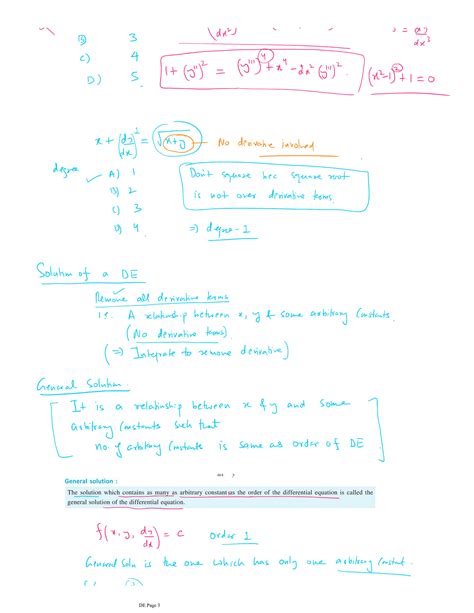 B) 3
C) 4
D) 5
(dx²)
1 + (y'')² = (y''')⁴ + x⁴ - dx² (y'')²
(x²-1)² + 1 = 0
x + (dy/dx)¹ = √x+y → No derivative involved
degree
A) 1
B) 2
C) 3
D) 4
Don't square bec square root
is not over derivative terms
⇒ degree - 1
Solution of a DE
Remove all derivative terms
i.e. A relationship between x, y & some arbitrary constants.
(No derivative terms).
(⇒ Integrate to remove derivative)
General Solution
It is a relationship between x & y and some
arbitrary constants such that
no. of arbitrary constants is same as order of DE
General solution :
The solution which contains as many as arbitrary constant as the order of the differential equation is called the
general solution of the differential equation.
f(x, y, dy/dx) = c order 1
General soln is the one which has only one arbitrary constant.
DE Page 3